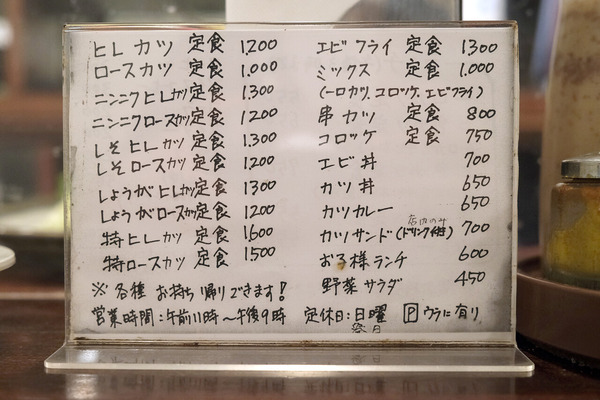 ヒレカツ 定食 1200
ロースカツ 定食 1.000
ニンニクヒレカツ定食 1.300
ニンニクロースカツ定食 1200
しそヒレカツ定食 1.300
しそロースカツ定食 1200
しょうがヒレカツ定食 1300
しょうがロースカツ定食 1200
特ヒレカツ 定食 1600
特ロースカツ 定食 1500
※各種 お持ち帰りできます!
営業時間:午前11時~午後9時
エビフライ 定食 1.300
ミックス 定食 1.000
(一口カツ、コロッケ、エビフライ)
串カツ 定食 800
コロッケ 定食 750
エビ丼 700
カツ丼 650
カツカレー 650
店内のみ
カツサンド(ドリンク付) 700
お子様ランチ 600
野菜サラダ 450
定休日:日曜 Pウラに有り
祭日